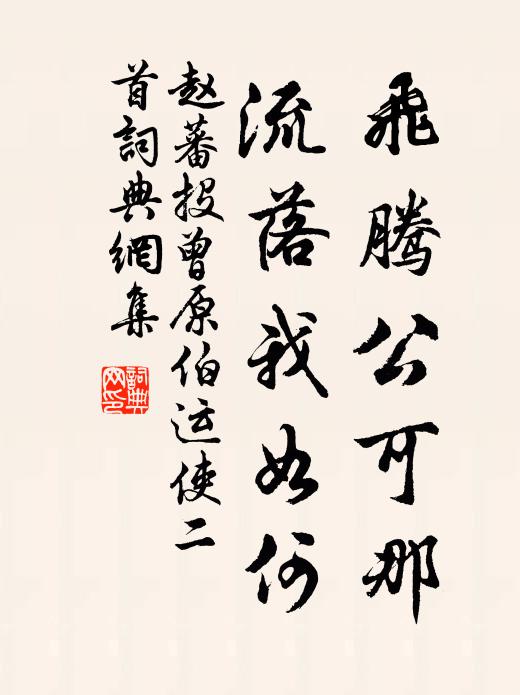 飛騰公可那
流落我如何
赵蕃投曾原伯运使二
首詞典網集
詞典網印